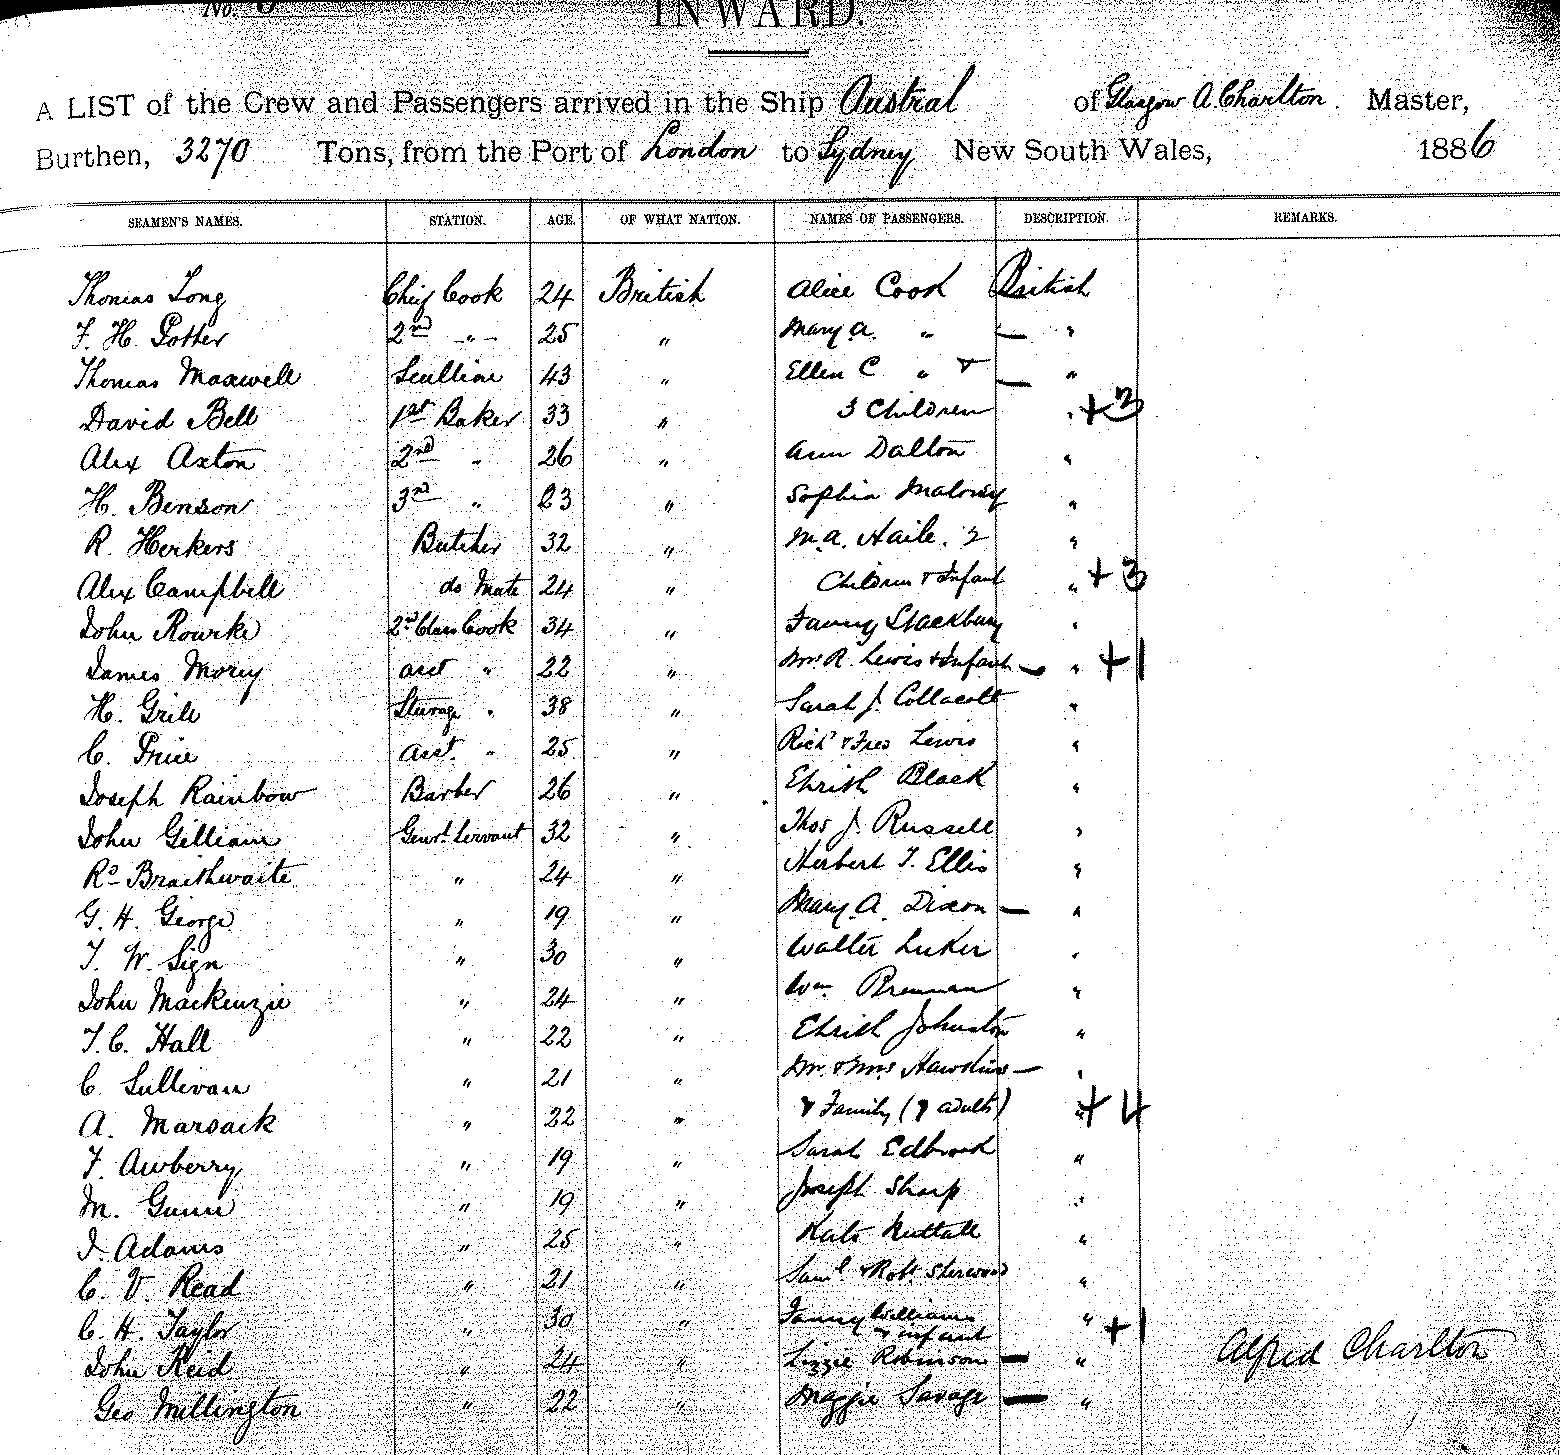 No. 6
INWARD.
A LIST of the Crew and Passengers arrived in the Ship Austral of Glasgow A. Charlton. Master,
Burthen, 3270 Tons, from the Port of London to Sydney New South Wales, 1886
SEAMEN'S NAMES. STATION. AGE. OF WHAT NATION. NAMES OF PASSENGERS. DESCRIPTION. REMARKS.
Thomas Long Chief Cook 24 British Alice Cook British
F. H. Potter 2nd -"- 25 " Mary A. " — "
Thomas Maxwell Scullion 43 " Ellen C " & — "
David Bell 1st Baker 33 " 3 Children " +3
Alex Axton 2nd " 26 " Ann Dalton "
H. Benson 3rd " 23 " Sophia Maloney "
R. Herkers Butcher 32 " M. A. Haile. 2 "
Alex Campbell do Mate 24 " Children & Infant " +3
John Rourke 2nd Class Cook 34 " Fanny "
James Morey asst " 22 " Mrs R. Lewis & Infant — " +1
H. Grile Steerage " 38 " Sarah J. Collacott "
C. Price asst. " 25 " Richd & Fres Lewis "
Joseph Rainbow Barber 26 " Edith Black "
John Gilliam Genrl. Servant 32 " Thos J. Russell "
Ro Braithwaite " 24 " Herbert T. Ellis "
G. H. George " 19 " Mary A. Dixon — "
T. W. Sign " 30 " Walter Luker "
John Mackenzie " 24 " Wm Brennan "
T. C. Hall " 22 " Edith Johnston "
C. Sullivan " 21 " Mr. & Mrs Hawkins — "
A. Marsack " 22 " & Family ( adults) " +4
F. Awberry " 19 " Sarah Edbrook "
M. Gunn " 19 " Joseph Sharp "
J. Adams " 25 " Kate Nuttall "
C. V. Read " 21 " Saml & Robt Sherwood "
C. H. Taylor " 30 " Fanny Williams & infant " +1
John Reid " 24 " Lizzie Robinson — " Alfred Charlton
Geo Millington " 22 " Maggie Savage — "